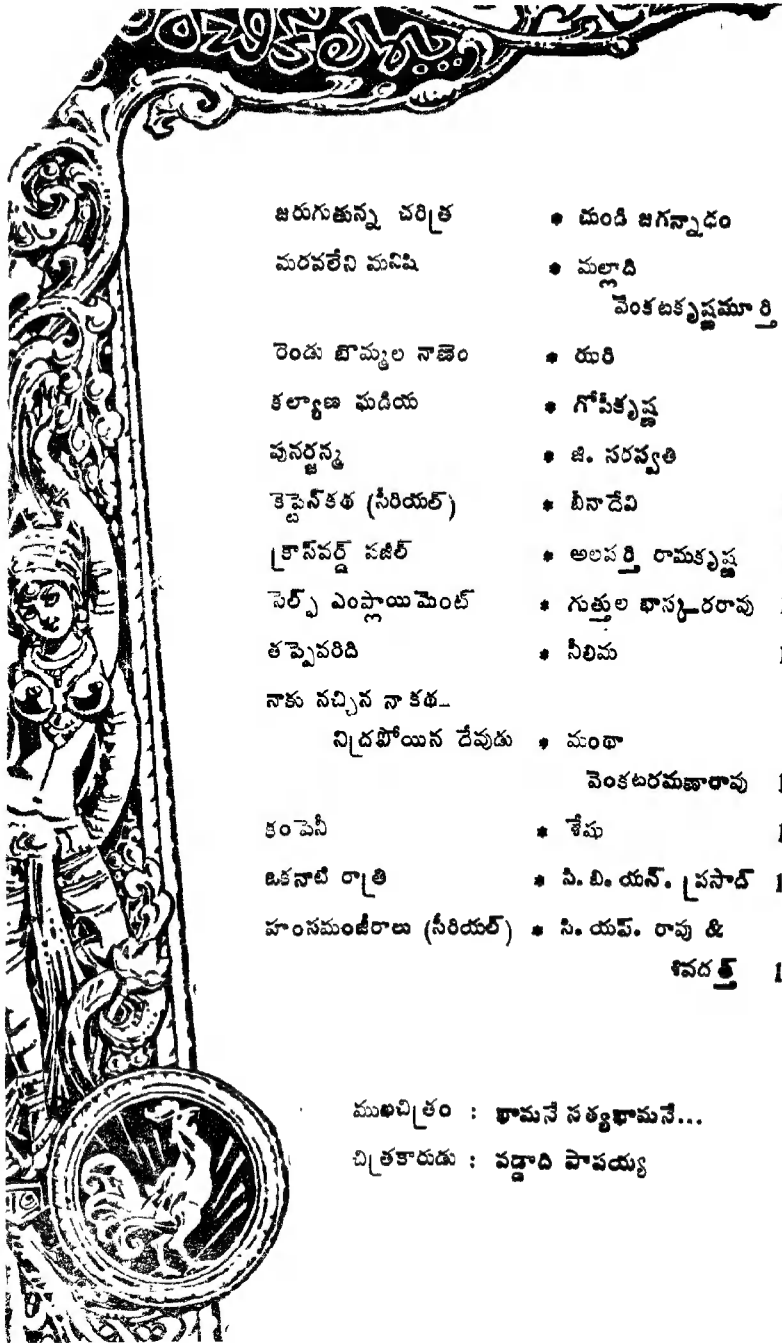 జరుగుతున్న చరిత్ర * చుండి జగన్నాధం
మరవలేని మనిషి * మల్లాది
వెంకటకృష్ణమూర్తి
రెండు బొమ్మల నాణెం * ఝరి
కల్యాణ ఘడియ * గోపీకృష్ణ
పునర్జన్మ * జి. సరస్వతి
కెప్టెన్‌కథ (సీరియల్) * బీనాదేవి
క్రాస్‌వర్డ్ పజిల్ * అలపర్తి రామకృష్ణ
సెల్ఫ్ ఎంప్లాయిమెంట్ * గుత్తుల భాస్కరరావు
తప్పెవరిది * నీలిమ
నాకు నచ్చిన నా కథ–
నిద్రపోయిన దేవుడు * మంథా
వెంకటరమణారావు
కంపెనీ * శేషు
ఒకనాటి రాత్రి * సి. బి. యన్. ప్రసాద్
హంసమంజీరాలు (సీరియల్) * సి. యప్. రావు &
శివదత్త్
ముఖచిత్రం : భామనే సత్యభామనే...
చిత్రకారుడు : వడ్డాది పాపయ్య